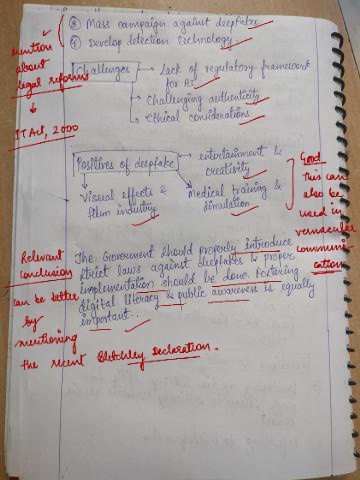 ③ Mass campaign against deepfake
④ Develop detection technology
mention
about
legal reforms
IT Act, 2000
Challenges
Lack of regulatory framework
for AI
Challenging authenticity
Ethical considerations
Positives of deepfake
entertainment &
creativity
Visual effects &
film industry
Medical training &
simulation
Good
This can
also be
used in
vernacular
communi
cation
The Government should properly introduce
strict laws against deepfakes & proper
implementation should be done. Fostering
digital literacy & public awareness is equally
important.
Relevant
conclusion
can be better
by
mentioning
the recent Bletchley Declaration.